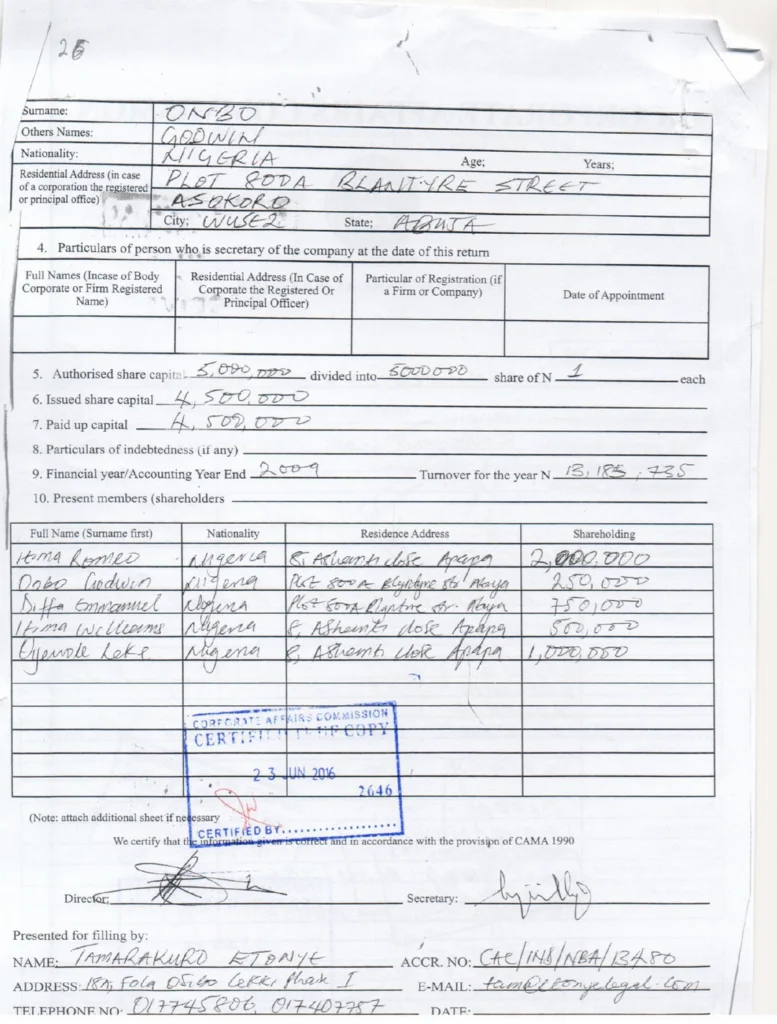 26
Surname: ONBO
Others Names: GODWIN
Nationality: NIGERIA Age; Years;
Residential Address (in case of a corporation the registered or principal office) PLOT 800A BLANTYRE STREET
ASOKORO
City; WUSE2 State; ABUJA
4. Particulars of person who is secretary of the company at the date of this return
Full Names (Incase of Body Corporate or Firm Registered Name) Residential Address (In Case of Corporate the Registered Or Principal Officer) Particular of Registration (if a Firm or Company) Date of Appointment
5. Authorised share capital 5,000,000 divided into 5000000 share of N 1 each
6. Issued share capital 4,500,000
7. Paid up capital 4,500,000
8. Particulars of indebtedness (if any)
9. Financial year/Accounting Year End 2009 Turnover for the year N 13,185,735
10. Present members (shareholders
Full Name (Surname first) Nationality Residence Address Shareholding
Itima Romeo Nigeria 8, Ashanti close Apapa 2,000,000
Onbo Godwin Nigeria Plot 800A Blantyre str 250,000
Diffa Emmanuel Nigeria Plot 800A Blantyre str. 750,000
Itima Williams Nigeria 8, Ashanti close Apapa 500,000
Leke Nigeria 8, Ashanti close Apapa 1,000,000
CORPORATE AFFAIRS COMMISSION
CERTIFIED TRUE COPY
23 JUN 2016
2646
CERTIFIED BY
(Note: attach additional sheet if necessary
We certify that the information given is correct and in accordance with the provision of CAMA 1990
Director; Secretary:
Presented for filling by:
NAME: TAMARAKURO ETONYE ACCR. NO: CAC/INS/NBA/13480
ADDRESS: 18A, Fola Osibo Lekki Phase I E-MAIL: tam@etonyelegal.com
TELEPHONE NO: 017745806, 017407757 DATE: